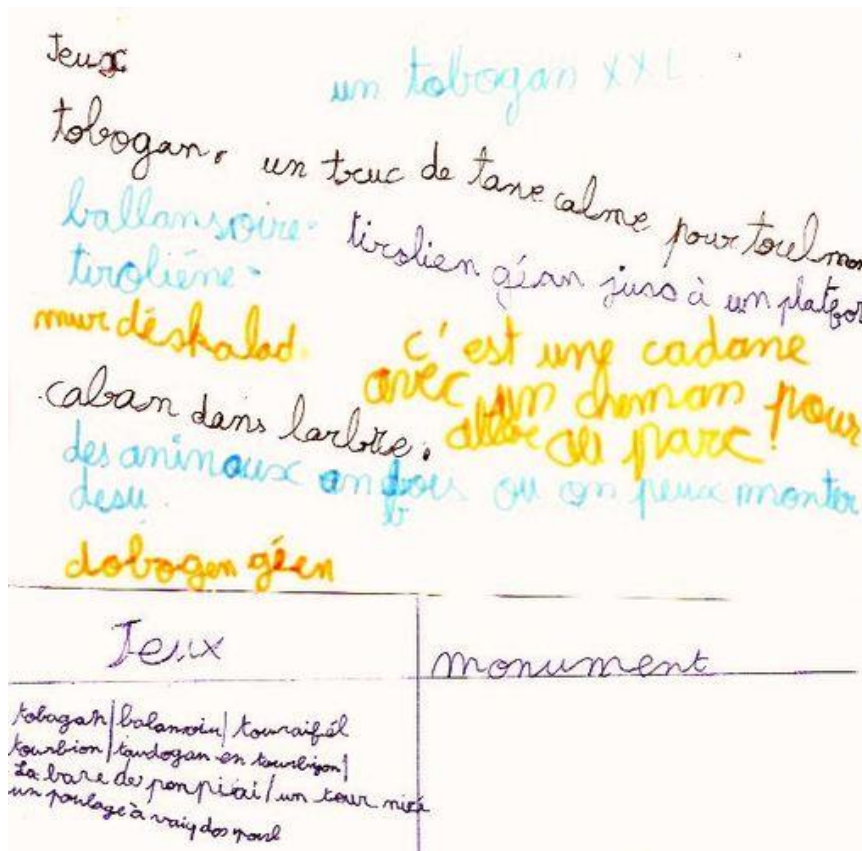 Jeux
un tobogan XXL
tobogan. un truc de tane calme pour toulmon
ballansoire.
tiroliéne.
tirolien géan juss à un platfor
mur déskalad.
c'est une cadane
avec un cheman pour
aller au parc!
caban dans larbre.
des aninaux an bois ou on peux monter
desu.
dobogen géen
Jeux
monument
tobagan/balansoir/touraifél
tourbion/taudogan en tourbigon/
La bare de ponpiéai/un tour
un